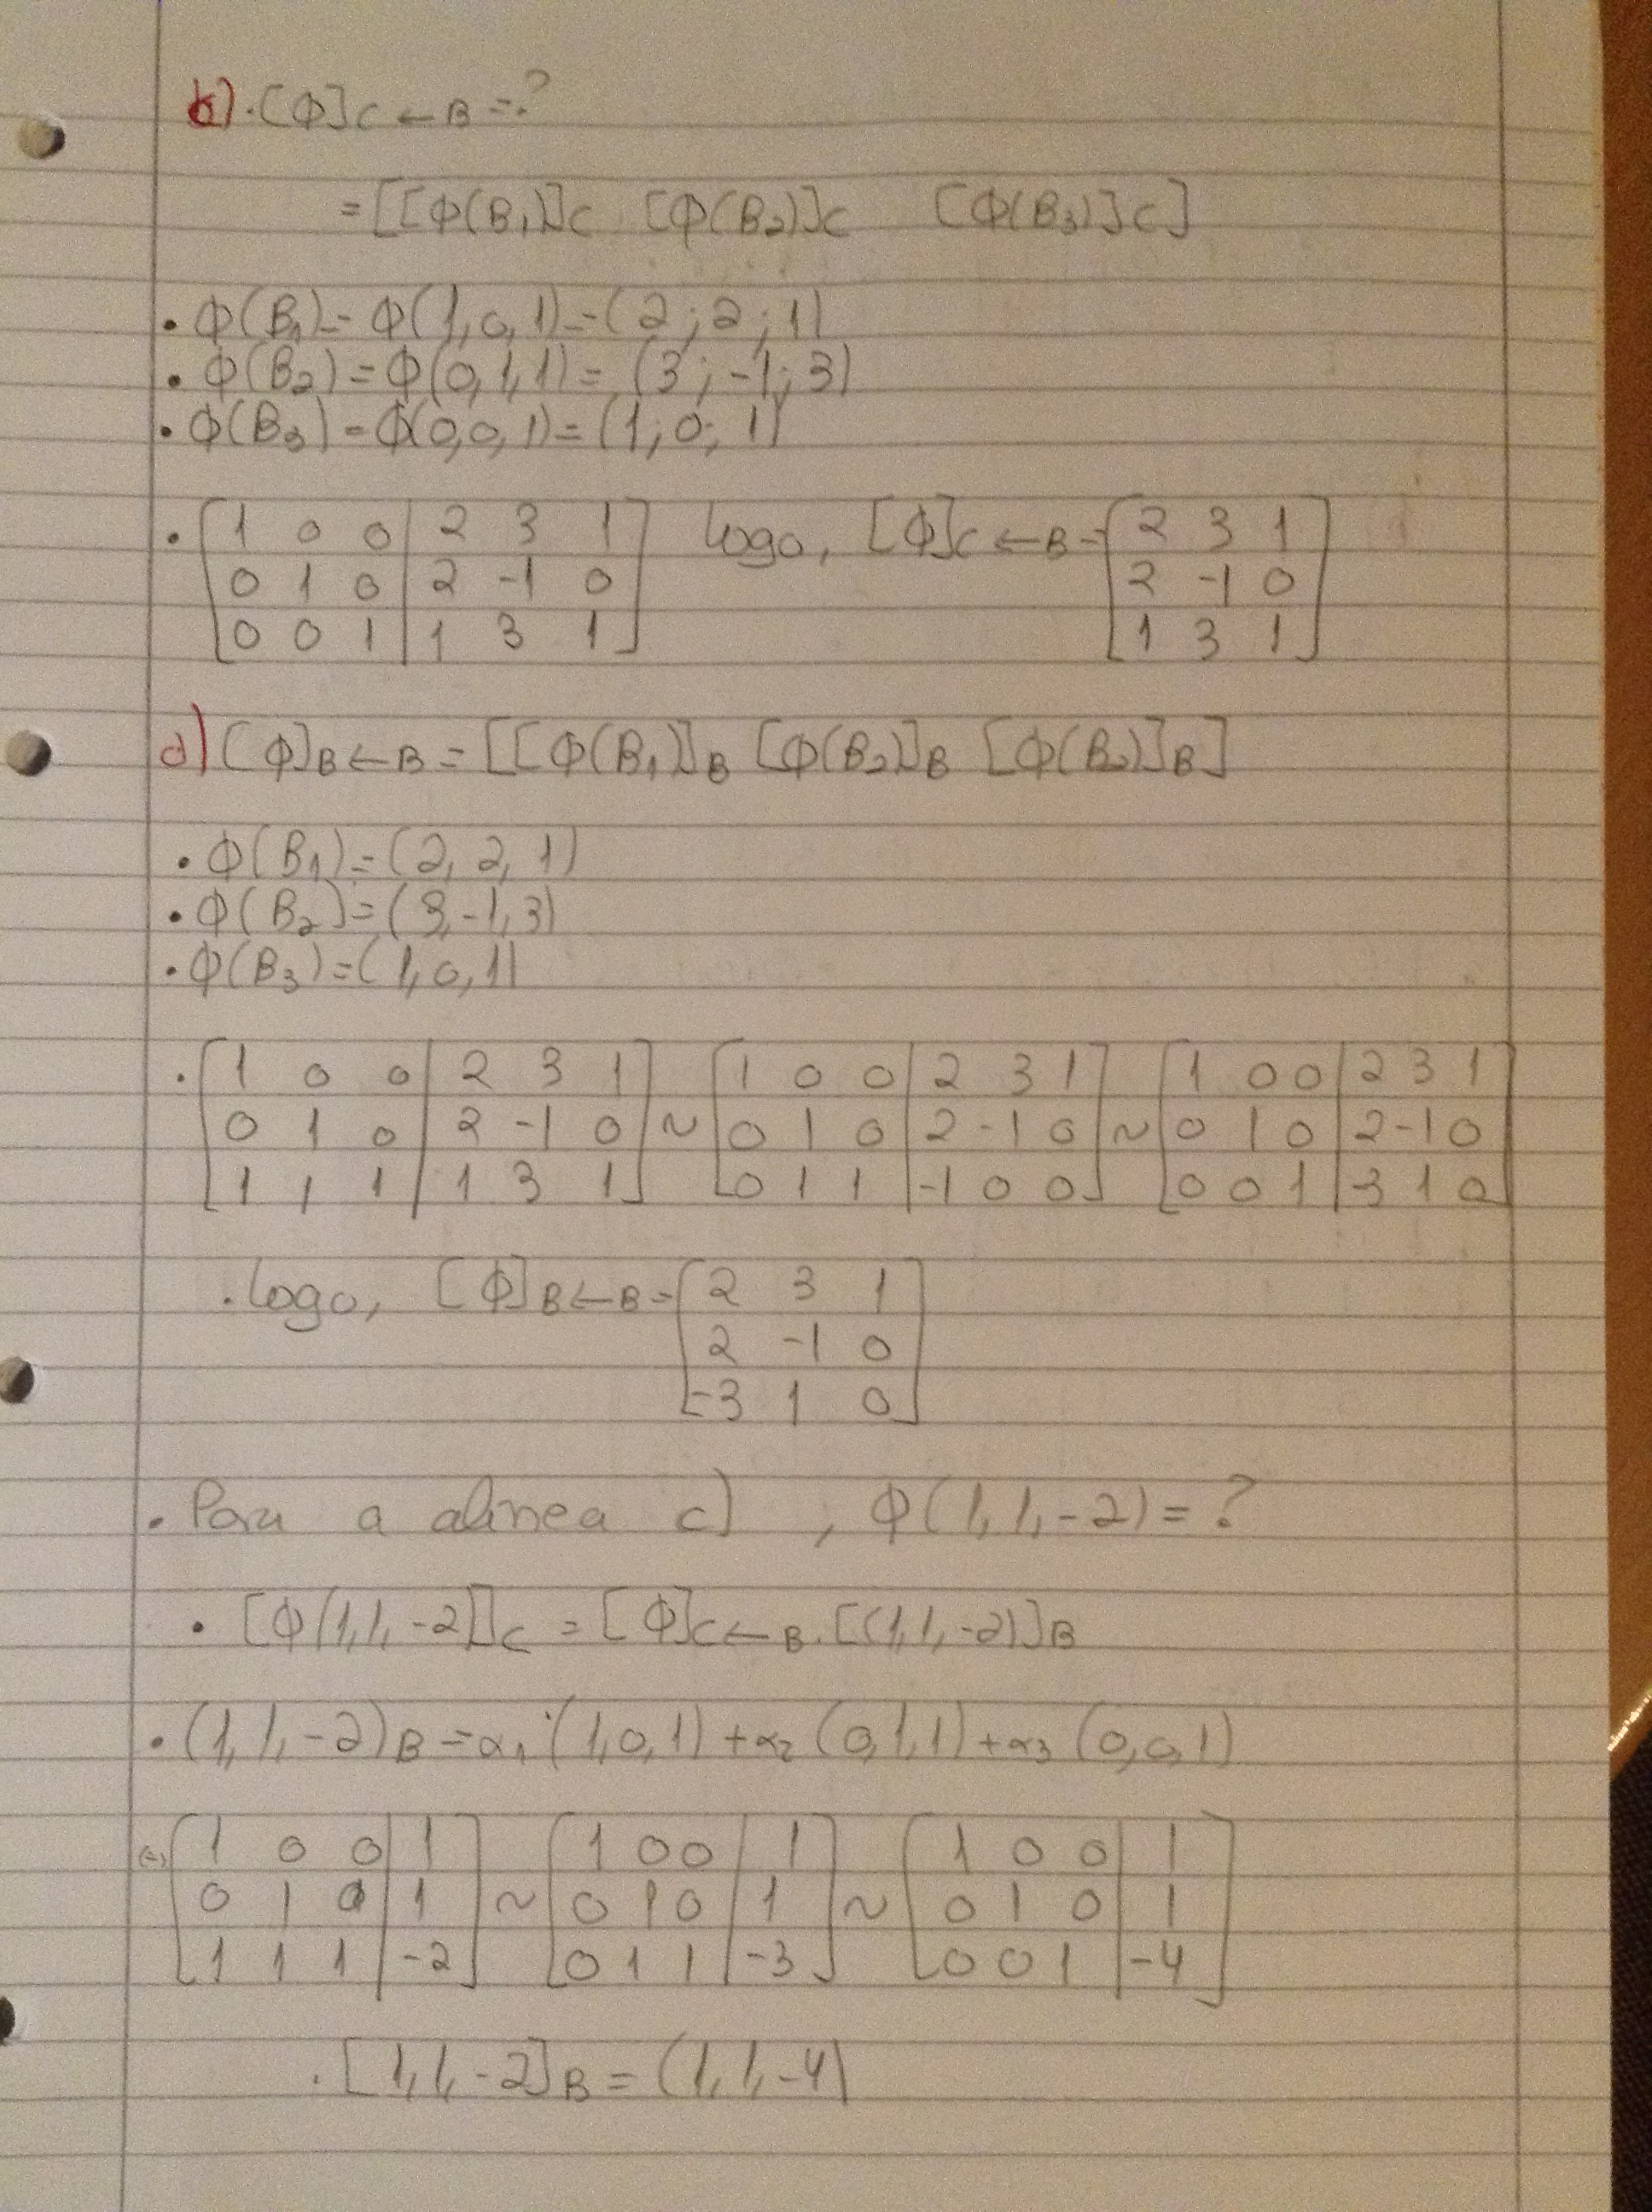 b) . [Φ]C ← B = ?
= [[Φ(B1)]C [Φ(B2)]C [Φ(B3)]C]
• Φ(B1) = Φ(1,0,1) = (2; 2; 1)
• Φ(B2) = Φ(0,1,1) = (3; -1; 3)
• Φ(B3) = Φ(0,0,1) = (1; 0; 1)
• [1 0 0 | 2 3 1] logo, [Φ]C ← B = [2 3 1]
[0 1 0 | 2 -1 0] [2 -1 0]
[0 0 1 | 1 3 1] [1 3 1]
d) [Φ]B ← B = [[Φ(B1)]B [Φ(B2)]B [Φ(B3)]B]
• Φ(B1) = (2, 2, 1)
• Φ(B2) = (3, -1, 3)
• Φ(B3) = (1, 0, 1)
. [1 0 0 | 2 3 1] ~ [1 0 0 | 2 3 1] ~ [1 0 0 | 2 3 1]
[0 1 0 | 2 -1 0] [0 1 0 | 2 -1 0] [0 1 0 | 2 -1 0]
[1 1 1 | 1 3 1] [0 1 1 | -1 0 0] [0 0 1 | -3 1 0]
. logo, [Φ]B ← B = [2 3 1]
[2 -1 0]
[-3 1 0]
. Para a alinea c) , Φ(1, 1, -2) = ?
• [Φ(1,1,-2)]C = [Φ]C ← B . [(1,1,-2)]B
• (1, 1, -2)B = α1 (1,0,1) + α2 (0,1,1) + α3 (0,0,1)
(=) [1 0 0 | 1] ~ [1 0 0 | 1] ~ [1 0 0 | 1]
[0 1 0 | 1] [0 1 0 | 1] [0 1 0 | 1]
[1 1 1 | -2] [0 1 1 | -3] [0 0 1 | -4]
. [1, 1, -2]B = (1, 1, -4)